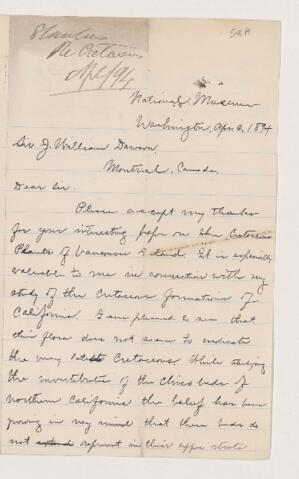 Stanton
Re Cretaceous
Apl/94
58A
National Museum
Washington, Apr. 2, 1894
Sir J. William Dawson,
Montreal, Canada,
Dear Sir:
Please accept my thanks
for your interesting paper on the Cretaceous
Plants of Vancouver Island. It is especially
valuable to me in connection with my
study of the Cretaceous formations of
California. I am pleased to see that
this flora does not seem to indicate
the very latest Cretaceous. While studying
the invertebrates of the Chico beds of
northern California the belief has been
growing in my mind that these beds do
not extend represent in their upper strata